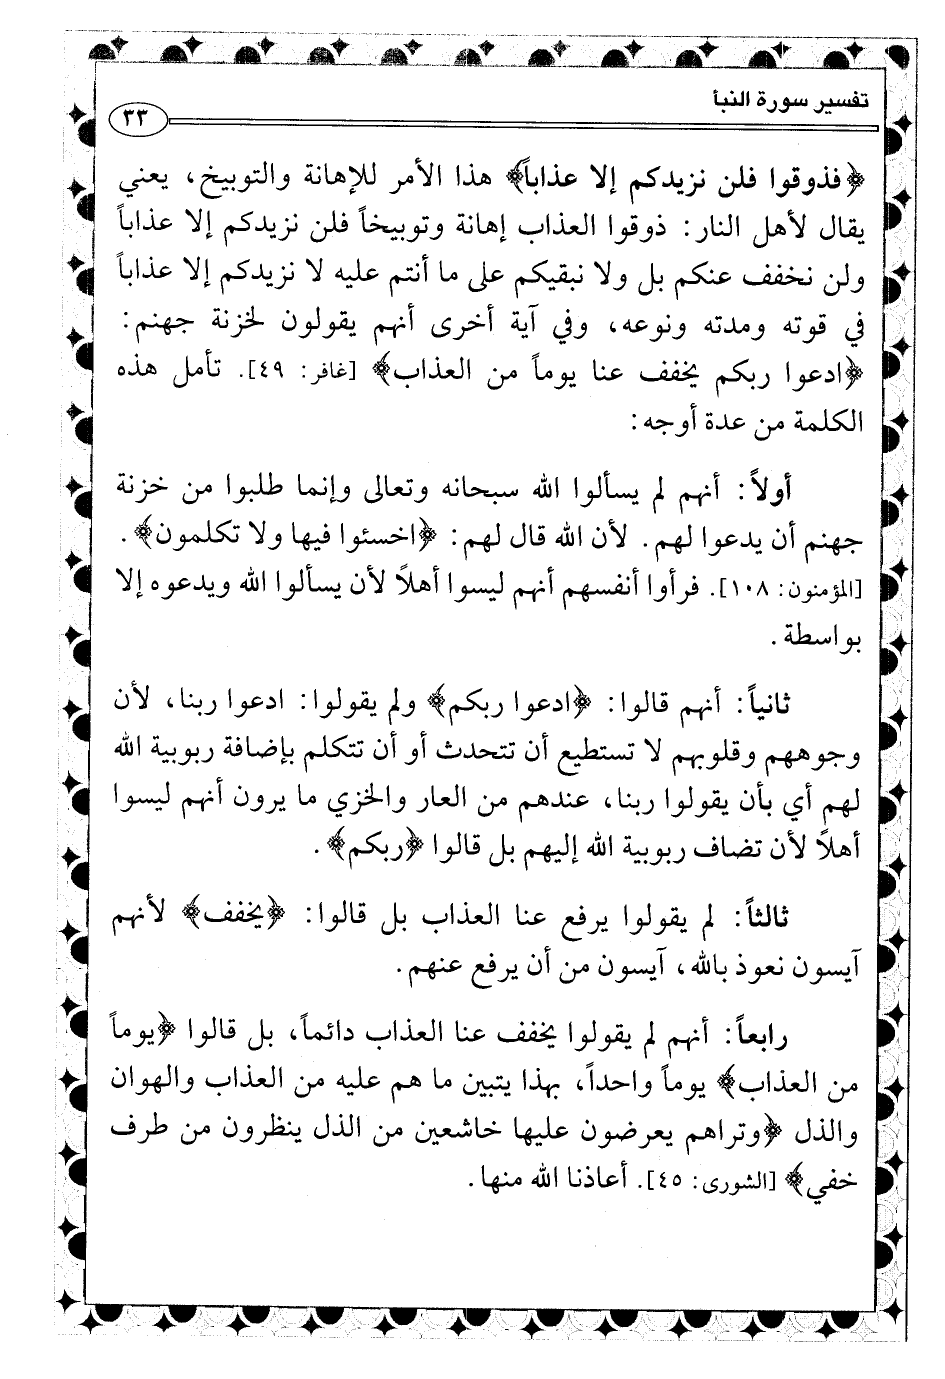 تفسير سورة النبأ
٣٣
﴿فذوقوا فلن نزيدكم إلا عذاباً﴾ هذا الأمر للإهانة والتوبيخ، يعني
يقال لأهل النار: ذوقوا العذاب إهانة وتوبيخاً فلن نزيدكم إلا عذاباً
ولن نخفف عنكم بل ولا نبقيكم على ما أنتم عليه لا نزيدكم إلا عذاباً
في قوته ومدته ونوعه، وفي آية أخرى أنهم يقولون لخزنة جهنم:
﴿ادعوا ربكم يخفف عنا يوماً من العذاب﴾ [غافر: ٤٩]. تأمل هذه
الكلمة من عدة أوجه:
أولاً: أنهم لم يسألوا الله سبحانه وتعالى وإنما طلبوا من خزنة
جهنم أن يدعوا لهم. لأن الله قال لهم: ﴿اخسئوا فيها ولا تكلمون﴾.
[المؤمنون: ١٠٨]. فرأوا أنفسهم أنهم ليسوا أهلاً لأن يسألوا الله ويدعوه إلا
بواسطة.
ثانياً: أنهم قالوا: ﴿ادعوا ربكم﴾ ولم يقولوا: ادعوا ربنا، لأن
وجوههم وقلوبهم لا تستطيع أن تتحدث أو أن تتكلم بإضافة ربوبية الله
لهم أي بأن يقولوا ربنا، عندهم من العار والخزي ما يرون أنهم ليسوا
أهلاً لأن تضاف ربوبية الله إليهم بل قالوا ﴿ربكم﴾.
ثالثاً: لم يقولوا يرفع عنا العذاب بل قالوا: ﴿يخفف﴾ لأنهم
آيسون نعوذ بالله، آيسون من أن يرفع عنهم.
رابعاً: أنهم لم يقولوا يخفف عنا العذاب دائماً، بل قالوا ﴿يوماً
من العذاب﴾ يوماً واحداً، بهذا يتبين ما هم عليه من العذاب والهوان
والذل ﴿وتراهم يعرضون عليها خاشعين من الذل ينظرون من طرف
خفي﴾ [الشورى: ٤٥]. أعاذنا الله منها.